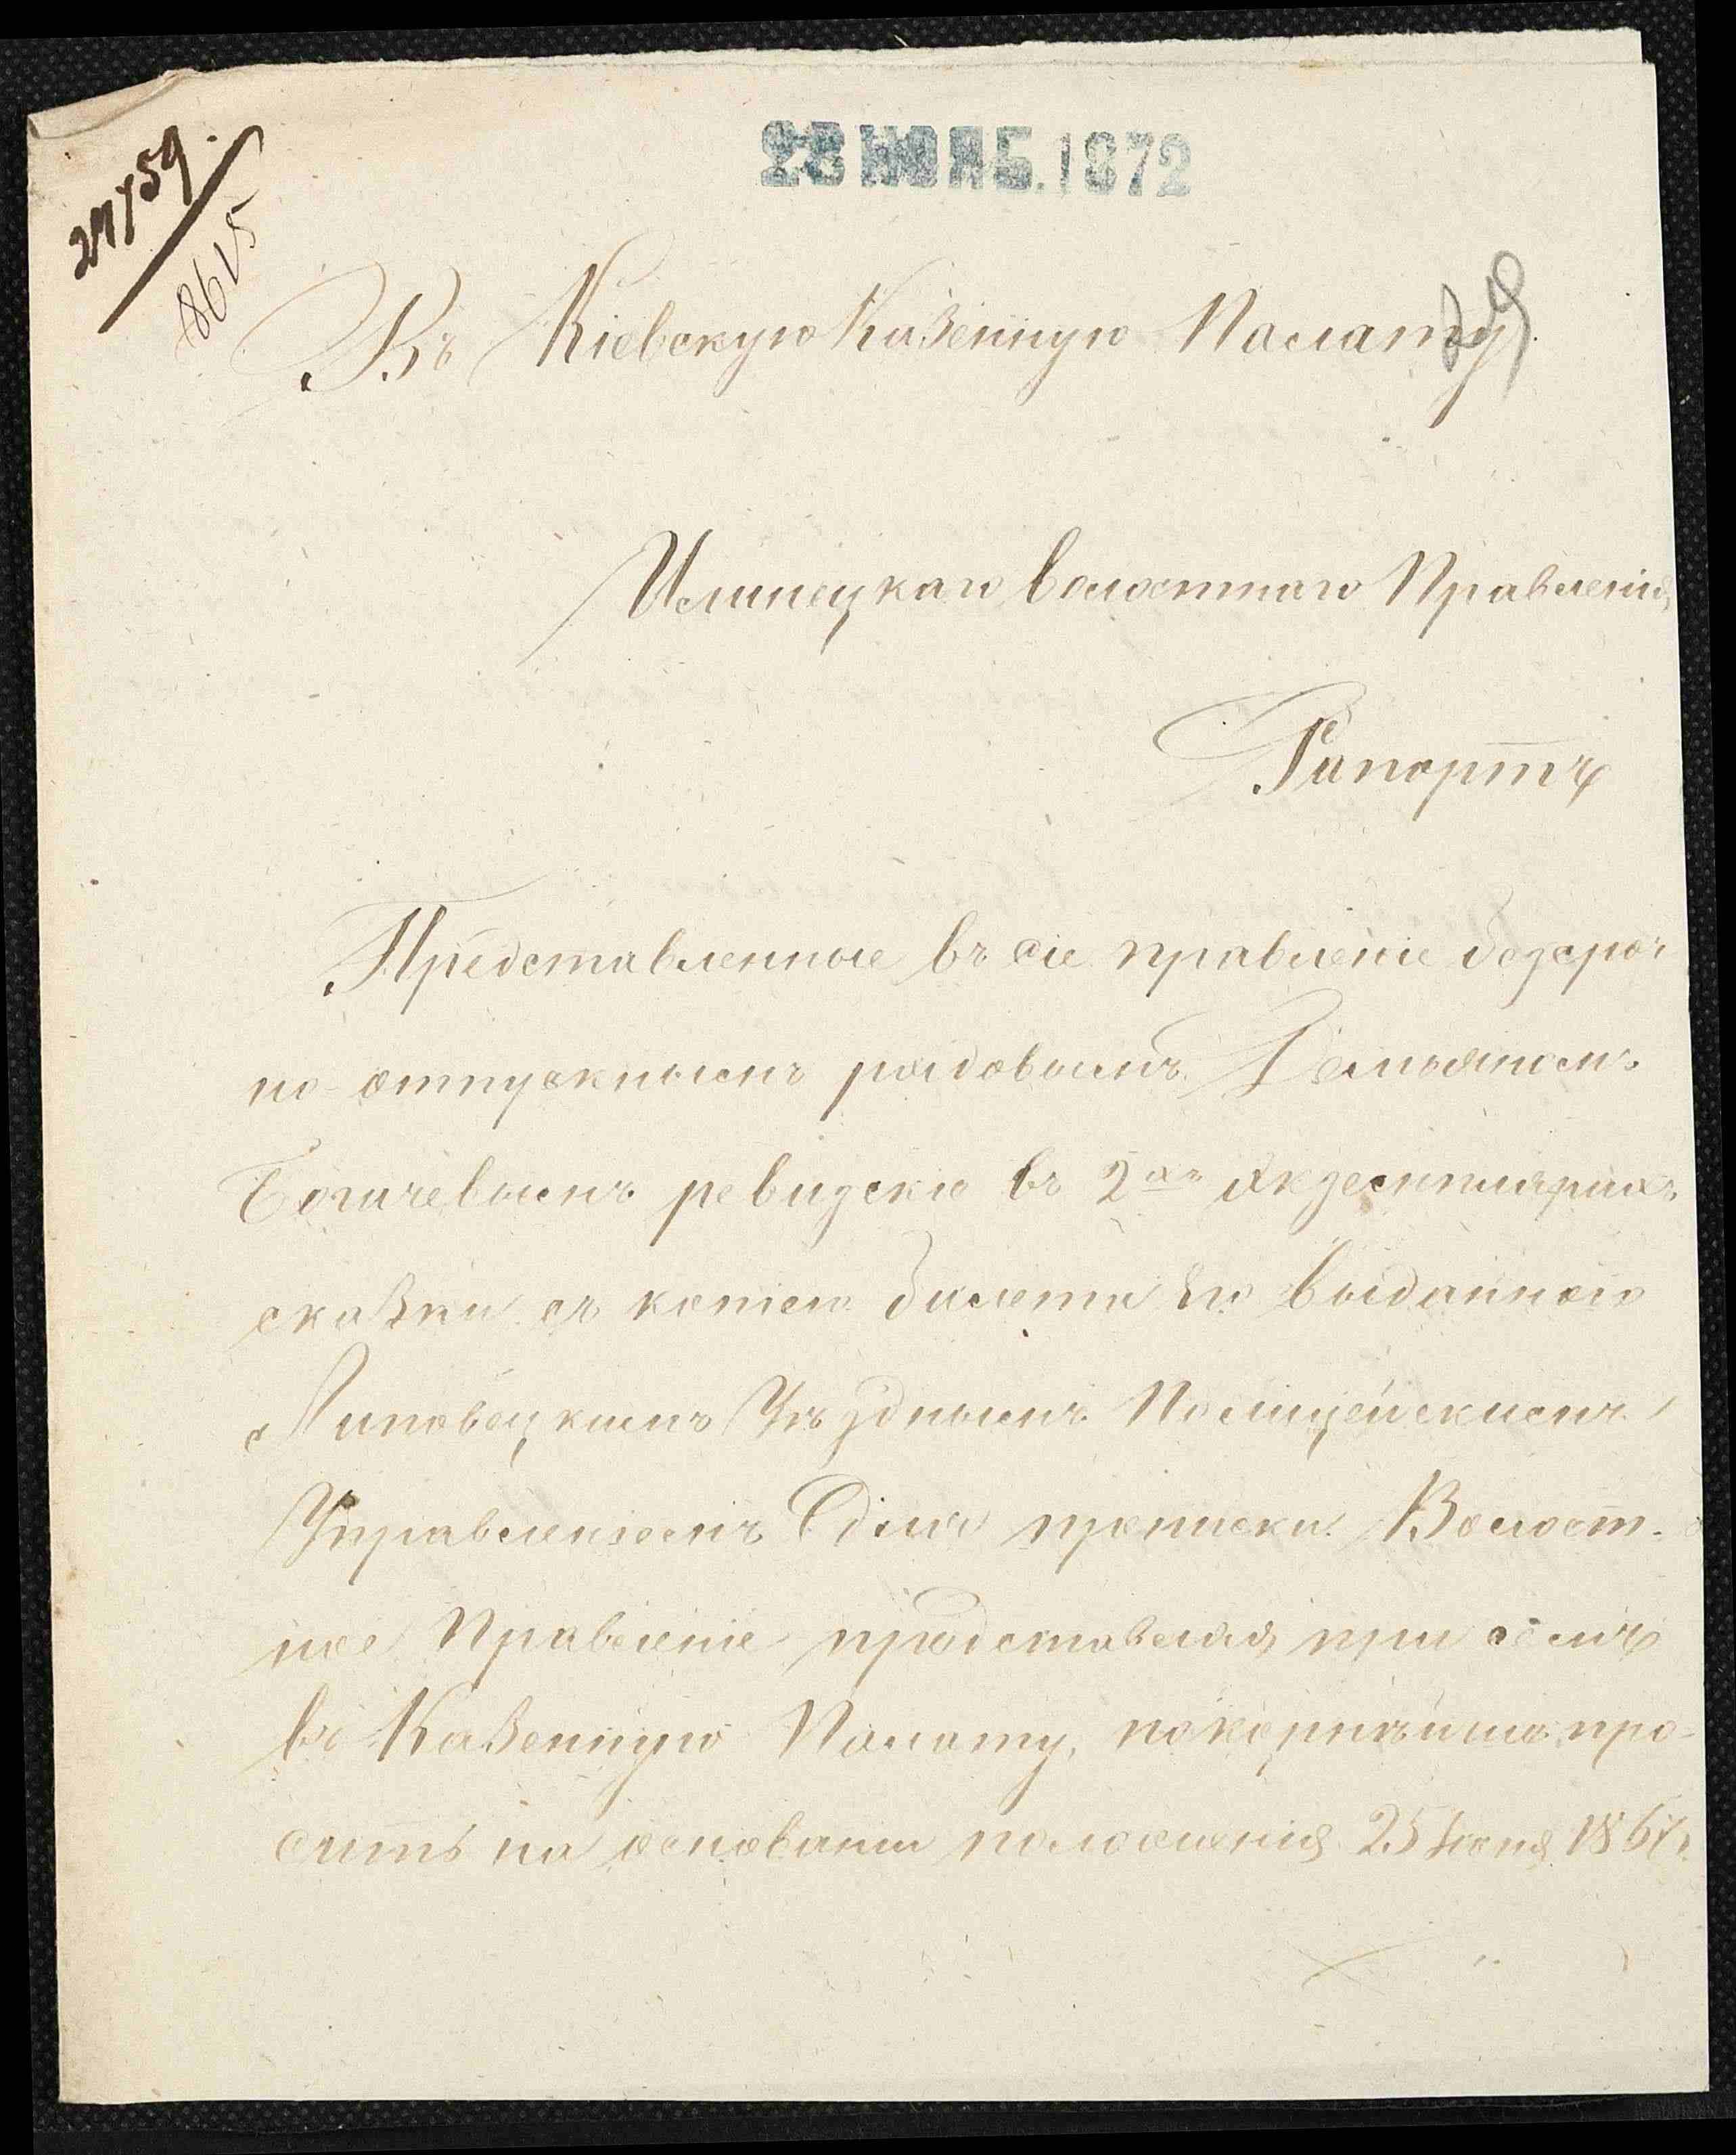 28 НОЯБ. 1872
8615
Въ Кіевскую Казенную Палату
Илинецкаго волостнаго Правленія
Рапортъ
Представленные въ сіе правленіе безсроч
но-отпускнымъ рядовымъ Демьяномъ
Богачевымъ ревизскіе въ 2хъ экземплярахъ
сказки съ копіею билета его выданного
Липовецкимъ Уѣзднымъ Полицейскимъ
Управленіемъ для приписки. Волост-
ное Правленіе представляя при семъ
въ Казенную Палату, покорнѣйше про-
ситъ на основаніи положенія 25 Іюня 1867г.